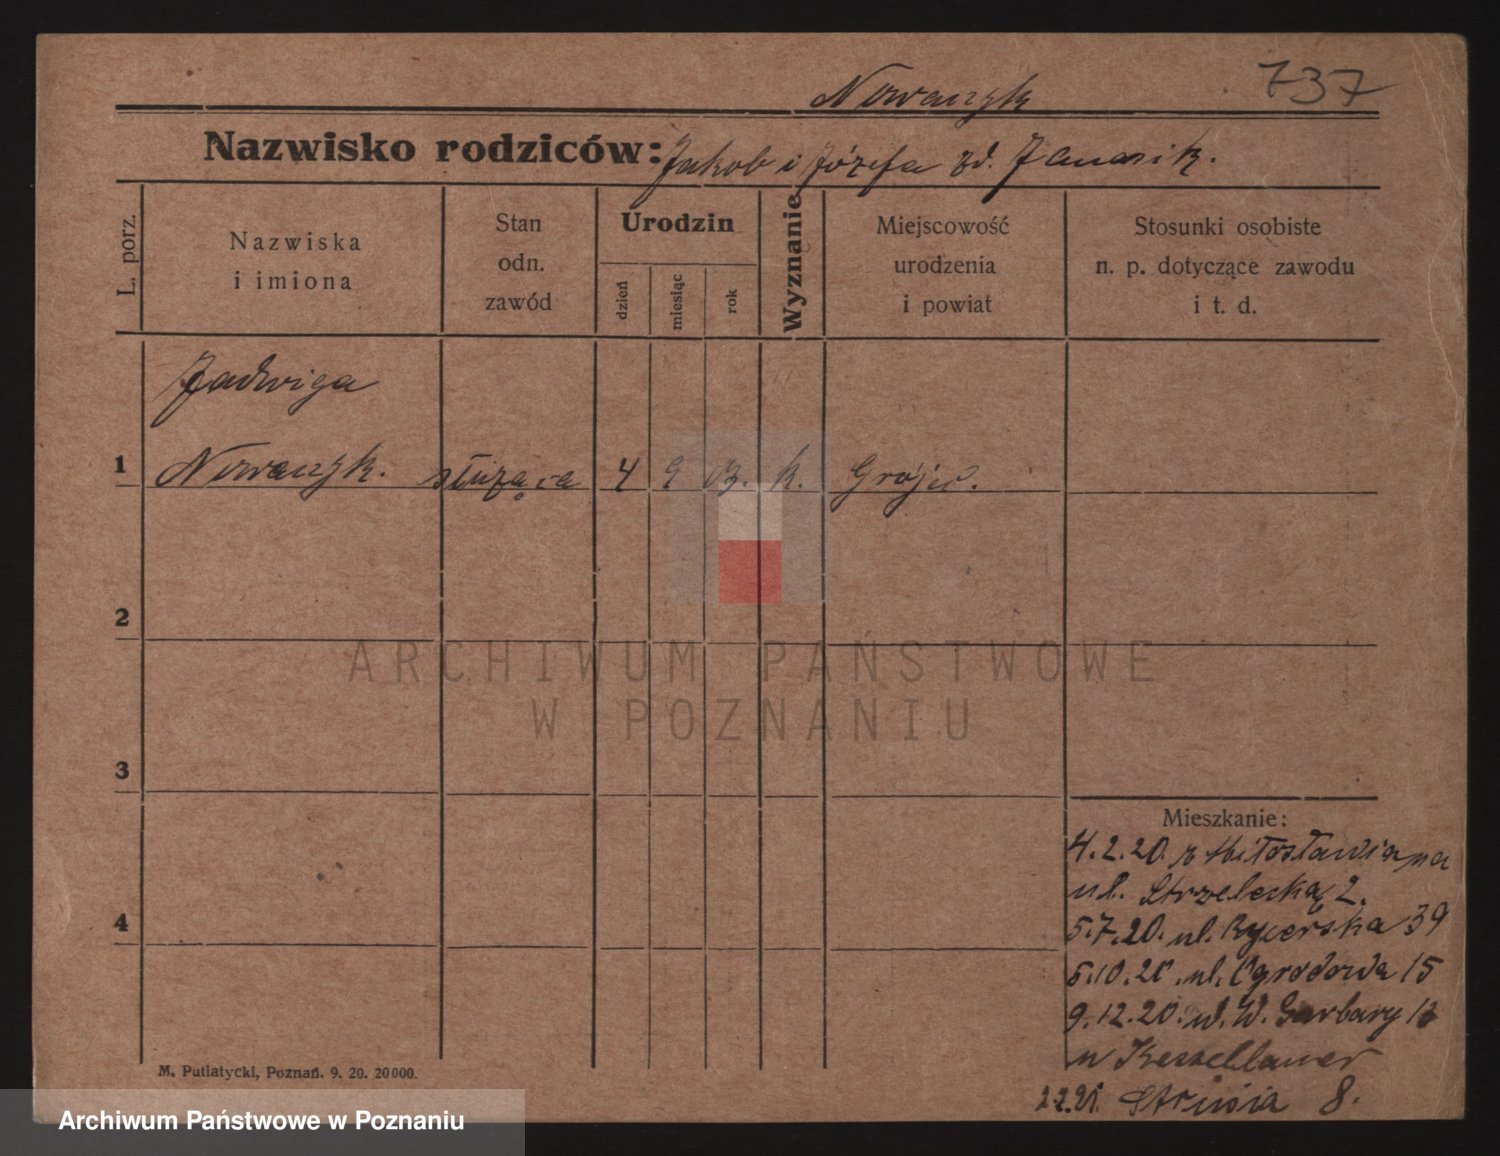 Nowaczyk 737
Nazwisko rodziców: Jakob i Józefa zd. Janasik.
L. porz.
Nazwiska
i imiona
Stan
odn.
zawód
Urodzin
dzień
miesiąc
rok
Wyznanie
Miejscowość
urodzenia
i powiat
Stosunki osobiste
n. p. dotyczące zawodu
i t. d.
Jadwiga
1 Nowaczyk. służąca 4 9 03. k. Grójec.
2
3
4
ARCHIWUM PAŃSTWOWE
W POZNANIU
Mieszkanie:
4.2.20. z Miłosławia na
ul. Strzelecką 2.
5.7.20. ul. Rycerska 39
5.10.20. ul. Ogrodowa 15
9.12.20. ul. W. Garbary
u
Strusia 8.
M. Putiatycki, Poznań. 9. 20. 20000.
Archiwum Państwowe w Poznaniu